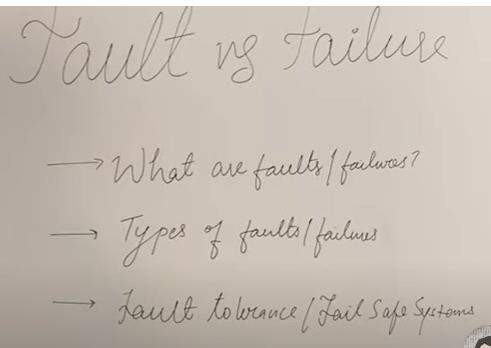 Fault vs Failure
→ What are faults/failures?
→ Types of faults/failures
→ Fault tolerance/Fail Safe Systems